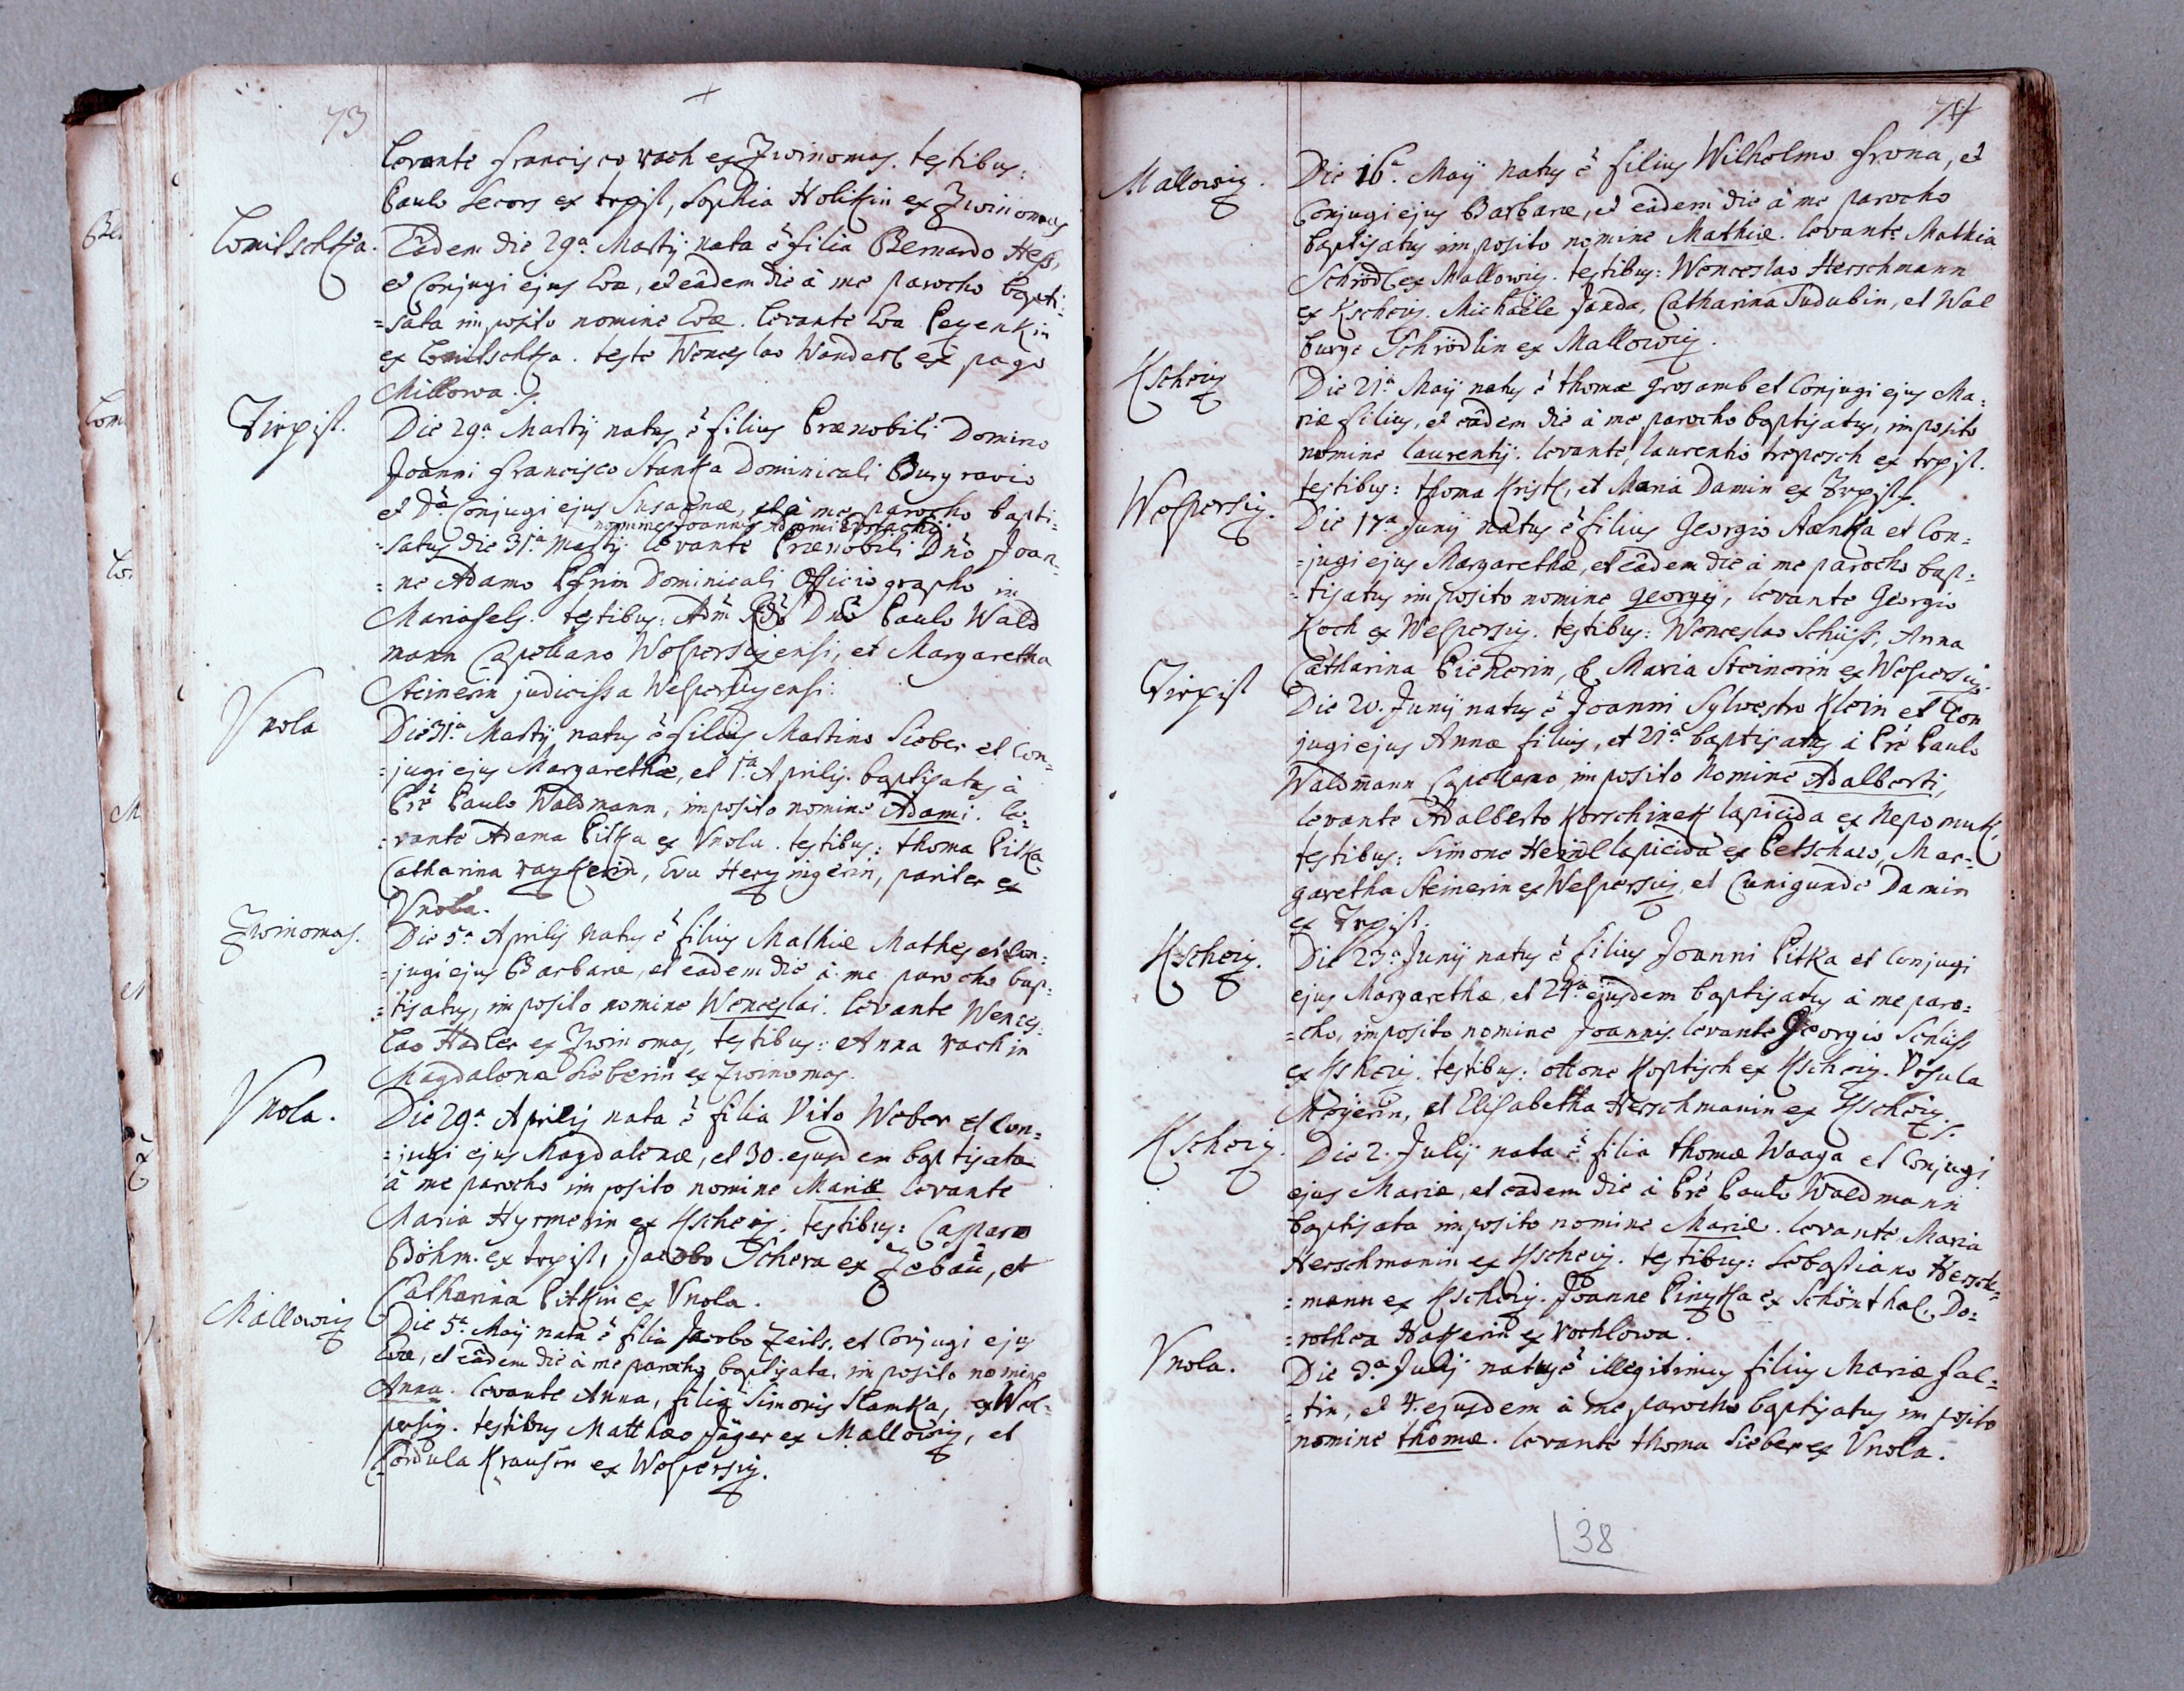 73
Levante Francisco rach ex Zwinomas. testibus:
Paulo Secors ex trpist, Sophia Holikin ex Zwinomas
Lomitschka. Eâdem die 29.a Martij nata ê filia Bernardo Hess,
et Conjugi ejus Evæ, et eâdem die â me parocho bapti-
=sata imposito nomine Evæ. levante Eva Peyenkin
ex Comitschka. teste Wenceslao Wanderl ex pago
Millowa.
Tirpist. Die 29.a Martij natus ê filius Prænobili Domino
Joanni Francisco Stanka Dominicali Burgravio
et D.æ Conjugi ejus Susannæ, et â me parocho bapti=
nomine Joannis Adami Eustachij
=satus die 31.a Martij levante Prænobili Dnô Joan=
=ne Adamo Dominicali Officiographo in
Mariafels. testibus: Adm Rdô Dnô Paulo Wald
mann Capellano Wolpersizensi, et Margaretha
Steinerin judicissa Welpersizensi.
Vnola Die 31.a Martij natus ê filius Martino Sieber et Con=
=jugi ejus Margarethæ, et 1.a Aprilis baptisatus â
Prê Paulo Waldmann, imposito nomine Adami. le=
=vante Adamo Pitka ex Vnola. testibus: thoma Pitka
Catharina, Eva Hergingerin, pariter ex
Vnola.
Zwinomas. Die 5.a Aprilis natus ê filius Mathiæ Mathes et Con=
=jugi ejus Barbaræ, et eadem die â me parocho bap=
=tisatus, imposito nomine Wenceslai. levante Wences
lao Hadler ex Zwinomas, testibus: Anna rachin
Magdalena Sieberin ex Zwinomas.
Vnola. Die 29.a Aprilis nata ê filia Vito Weber et Con=
=jugi ejus Magdalenæ, et 30. ejusdem baptisata
â me parocho imposito nomine Mariæ levante
Maria Hyrmerin ex Kscheiz. testibus: Casparo
Böhm. ex trpist, Jacobo Schera ex Zebau, et
Catharina Pitkin ex Vnola.
Mallowiz Die 5.a Maij nata ê filia Jacobo Zeits, et Conjugi ejus
Evæ, et eâdem die â me parocho baptisata, imposito nomine
Anna. levante Anna, filia Simonis Slamka, ex Wol=
persiz. testibus Matthæo Jäger ex Mallowiz, et
Cordula Krausin ex Wolpersiz.
74
Mallowiz. Die 16.a Maij natus ê filius Wilhelmo Frona, et
Conjugi ejus Barbaræ, et eâdem die â me parocho
baptisatus imposito nomine Mathiæ. levante Mathia
Schrödl ex Mallowiz. testibus: Wenceslao Herschmann
ex Kscheiz. Michaële Janda, Catharina Tudubin, et Wal
burge Schrödlin ex Mallowiz.
Kscheiz Die 21.a Maij natus ê thomæ Grosamb et Conjugi ejus Ma=
riæ filius, et eâdem die â me parocho baptisatus, imposito
nomine laurentij. levante laurentio trepesch ex trpist.
testibus: thoma Kristl, et Maria Damin ex Trpist.
Wolpersiz. Die 17.a Junij natus ê filius Georgio Aenka et Con=
=jugi ejus Margarethæ, et eâdem die â me parocho bap=
=tisatus imposito nomine Georgij, levante Georgio
Koch ex Welpersiz. testibus: Wenceslao Schüss, Anna
Catharina Pienerin, & Maria Steinerin ex Wolpersiz.
Tirpist Die 20. Junij natus ê Joanni Sylvestro Klein et Con
jugi ejus Annæ filius, et 21.a baptisatus â Prê Paulo
Waldmann Capellano, imposito nomine Adalberti,
levante Adalberto Korschinek lapicida ex Nepomuk,
testibus: Simone Heindl lapicida ex Petschaw, Mar=
garetha Steinerin ex Welpersiz, et Cunigunde Damin
ex Trpist.
Kscheiz. Die 23.a Junij natus ê filius Joanni Pitka et Conjugi
ejus Margarethæ, et 24.a ejusdem baptisatus â me paro=
=cho, imposito nomine Joannis. levante Georgio Schüss
ex Kscheiz. testibus: ottone Koptisch ex Kscheiz. Vrsula
Mayerin, et Elisabetha Herschmanin ex Kscheiz.
Kscheiz. Die 2. Julij nata ê filia thomæ Waaga et Conjugi
ejus Mariæ, et eadem die â Prê Paulo Waldmann
baptisata imposito nomine Mariæ. levante Maria
Herschmanin ex Kscheiz. testibus: Sebastiano Hersch=
=mann ex Kscheiz. Joanne Pinzka ex Schönthal. Do=
=rothea Hakerin ex Wochlowa.
Vnola. Die 3.a Julij natus ê illegitimus filius Mariæ Fal=
=tin, et 4. ejusdem â me parocho baptisatus imposito
nomine thomæ. levante thoma Sieber ex Vnola.
38